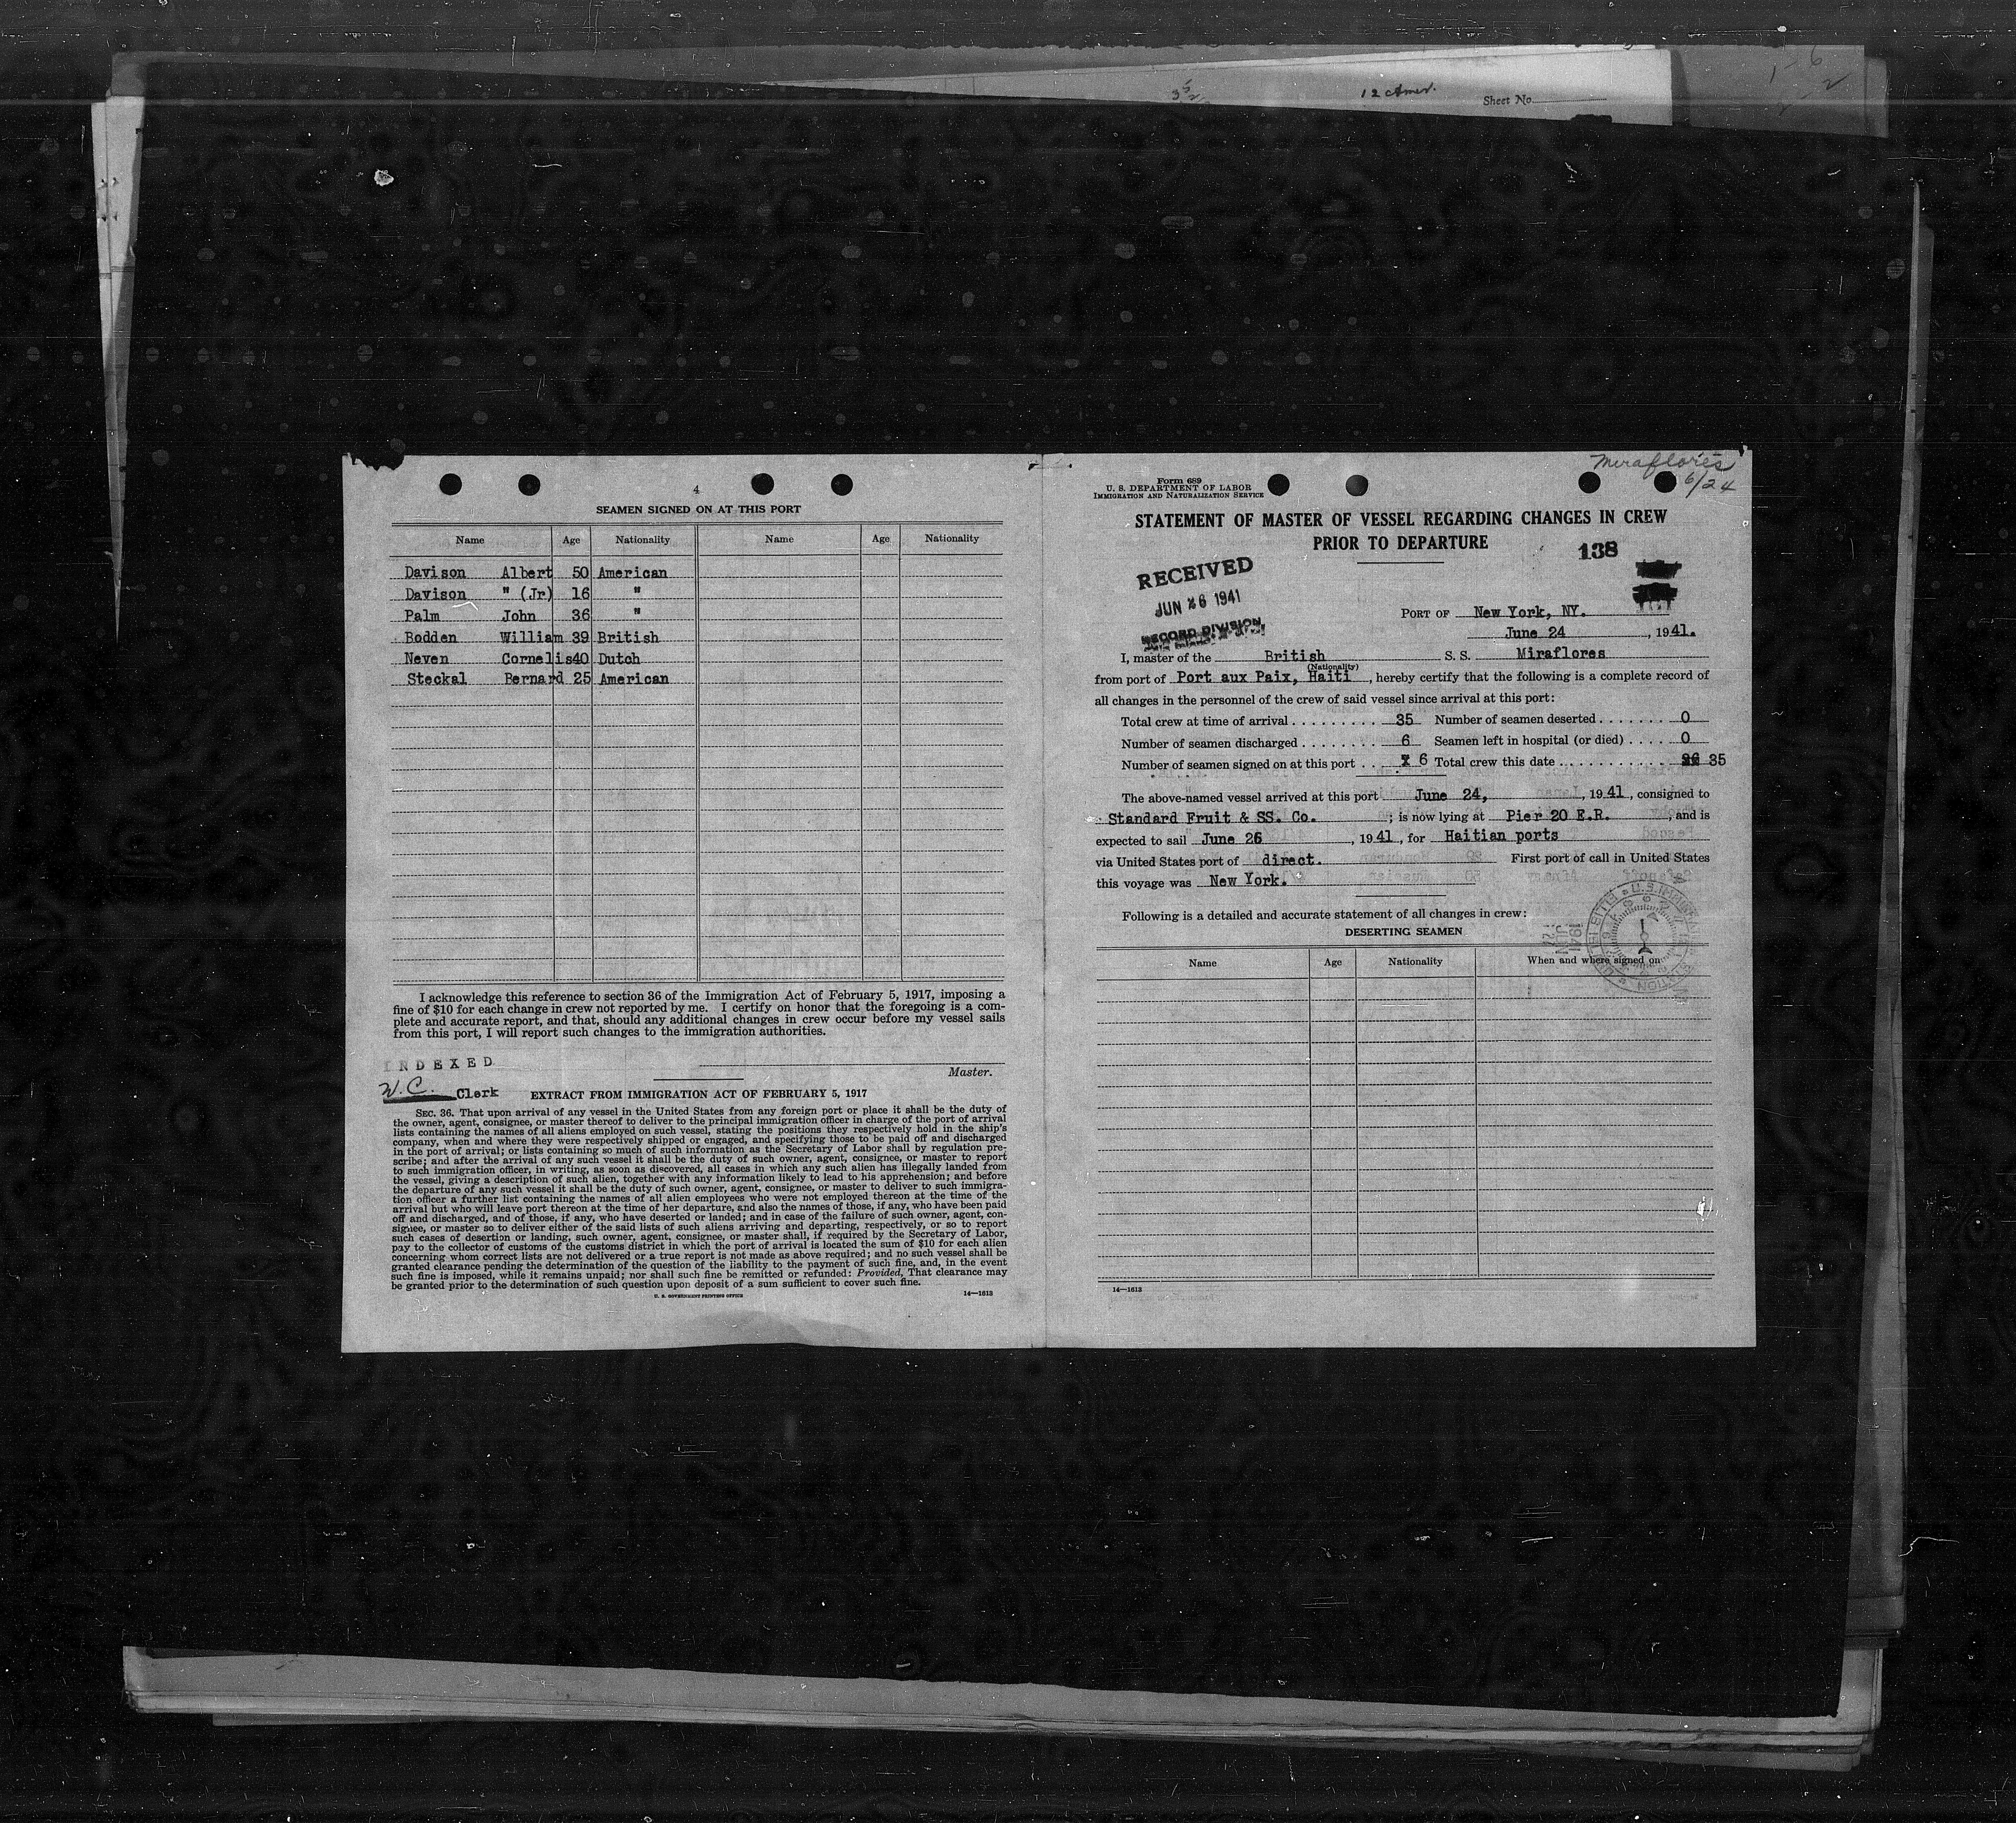 12 Amer.
Sheet No.
4
SEAMEN SIGNED ON AT THIS PORT
Name Age Nationality Name Age Nationality
Davison Albert 50 American
Davison " (Jr) 16 "
Palm John 36 "
Bodden William 39 British
Neven Cornelis 40 Dutch
Steckal Bernard 25 American
I acknowledge this reference to section 36 of the Immigration Act of February 5, 1917, imposing a
fine of $10 for each change in crew not reported by me. I certify on honor that the foregoing is a com-
plete and accurate report, and that, should any additional changes in crew occur before my vessel sails
from this port, I will report such changes to the immigration authorities.
INDEXED
Master.
W.C. Clerk
EXTRACT FROM IMMIGRATION ACT OF FEBRUARY 5, 1917
SEC. 36. That upon arrival of any vessel in the United States from any foreign port or place it shall be the duty of
the owner, agent, consignee, or master thereof to deliver to the principal immigration officer in charge of the port of arrival
lists containing the names of all aliens employed on such vessel, stating the positions they respectively hold in the ship's
company, when and where they were respectively shipped or engaged, and specifying those to be paid off and discharged
in the port of arrival; or lists containing so much of such information as the Secretary of Labor shall by regulation pre-
scribe; and after the arrival of any such vessel it shall be the duty of such owner, agent, consignee, or master to report
to such immigration officer, in writing, as soon as discovered, all cases in which any such alien has illegally landed from
the vessel, giving a description of such alien, together with any information likely to lead to his apprehension; and before
the departure of any such vessel it shall be the duty of such owner, agent, consignee, or master to deliver to such immigra-
tion officer a further list containing the names of all alien employees who were not employed thereon at the time of the
arrival but who will leave port thereon at the time of her departure, and also the names of those, if any, who have been paid
off and discharged, and of those, if any, who have deserted or landed; and in case of the failure of such owner, agent, con-
signee, or master so to deliver either of the said lists of such aliens arriving and departing, respectively, or so to report
such cases of desertion or landing, such owner, agent, consignee, or master shall, if required by the Secretary of Labor,
pay to the collector of customs of the customs district in which the port of arrival is located the sum of $10 for each alien
concerning whom correct lists are not delivered or a true report is not made as above required; and no such vessel shall be
granted clearance pending the determination of the question of the liability to the payment of such fine, and, in the event
such fine is imposed, while it remains unpaid; nor shall such fine be remitted or refunded: Provided, That clearance may
be granted prior to the determination of such question upon deposit of a sum sufficient to cover such fine.
U. S. GOVERNMENT PRINTING OFFICE
14—1613
Miraflores
6/24
Form 689
U. S. DEPARTMENT OF LABOR
IMMIGRATION AND NATURALIZATION SERVICE
STATEMENT OF MASTER OF VESSEL REGARDING CHANGES IN CREW
PRIOR TO DEPARTURE
138
RECEIVED
JUN 26 1941
RECORD DIVISION
PORT OF New York, NY.
June 24, 1941.
I, master of the British S. S. Miraflores
(Nationality)
from port of Port aux Paix, Haiti, hereby certify that the following is a complete record of
all changes in the personnel of the crew of said vessel since arrival at this port:
Total crew at time of arrival 35 Number of seamen deserted 0
Number of seamen discharged 6 Seamen left in hospital (or died) 0
Number of seamen signed on at this port 6 Total crew this date 35
The above-named vessel arrived at this port June 24, , 1941, consigned to
Standard Fruit & SS. Co. ; is now lying at Pier 20 E.R. , and is
expected to sail June 26 , 1941, for Haitian ports
via United States port of direct. First port of call in United States
this voyage was New York.
Following is a detailed and accurate statement of all changes in crew:
DESERTING SEAMEN
Name Age Nationality When and where signed on
14—1613